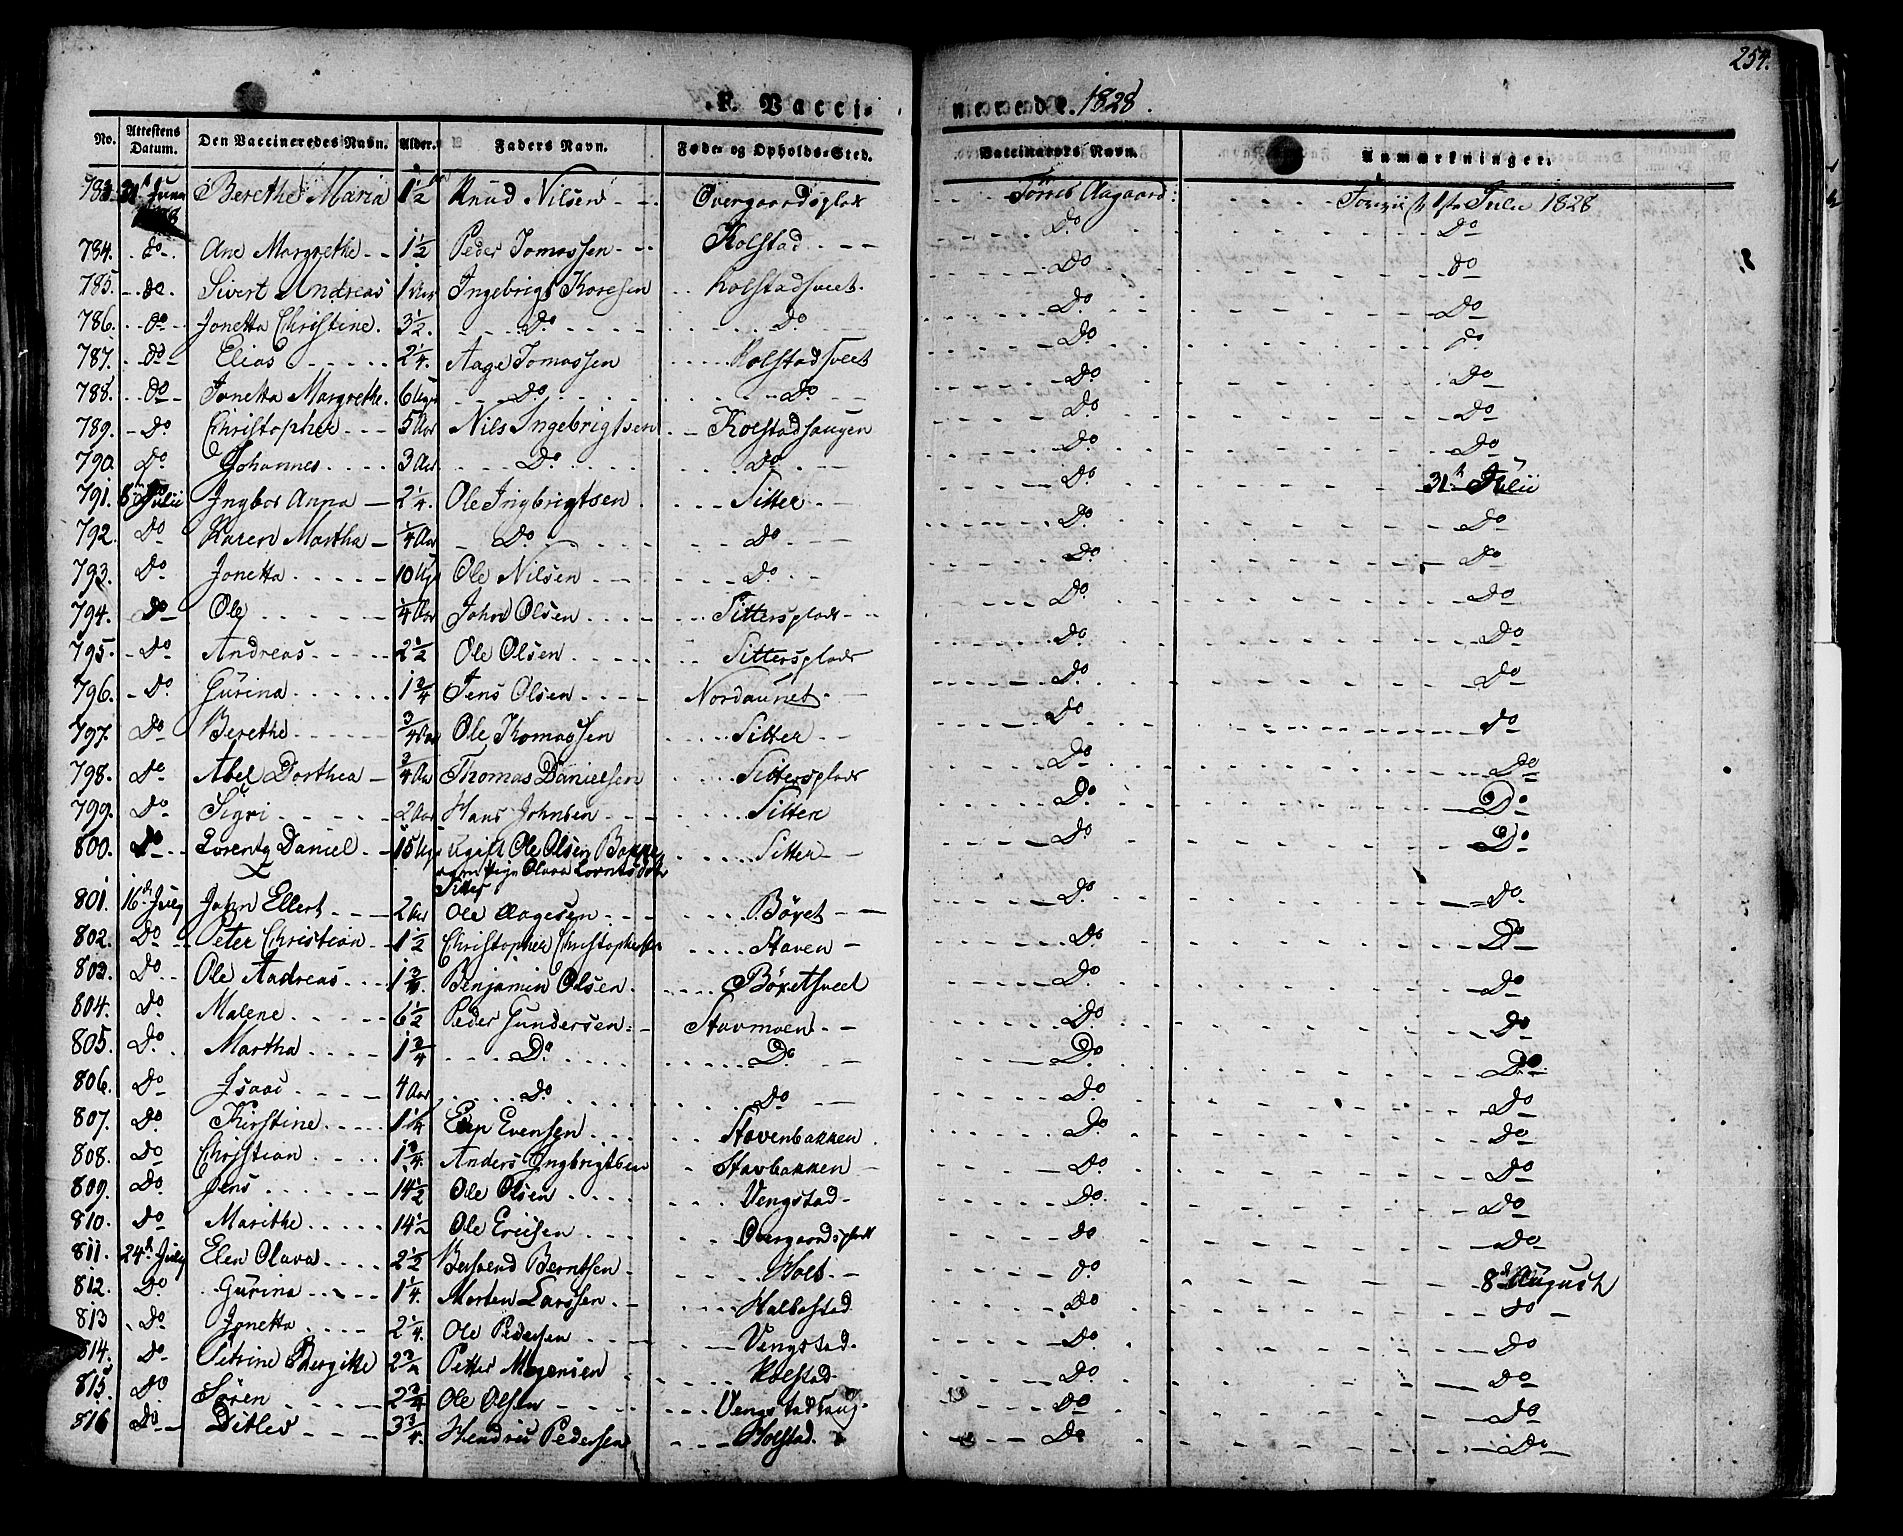 254.
F. Vacci-
nerede. 1828.
No. Attestens Datum. Den Vaccineredes Navn. Alder. Faders Navn. Føde- og Opholds-Sted. Vaccinators Navn. Anmærkninger.
783. 21 Juni 1828 Berethe Maria 1 1/2 Knud Nilsen Overgaardsplads Aagaard Julii 1828
784. do Ane Margrethe 1 1/2 Peder Tomassen Kolstad Do Do
785. do Sivert Andreas 1 Aar Ingebrigt Koresen Kolstadsveet Do do
786. Do Jonetta Christine. 3 1/2 Do Do Do Do
787. Do Elias 2 1/4. Aage Tomassen Kolstadsveet Do do
788. Do Jonetta Margrethe. 6 Uger Do Do Do Do
789. Do Christopher 5 Aar Nils Ingebrigtsen Kolstadhaugen Do Do
790. Do Johannes 3 Aar Do Do Do Do
791. 8 Julii Ingbor Anna 2 1/4. Ole Ingbrigtsen Sitter Do 31 Julii
792. Do Karen Martha 1/4 Aar Do Do Do Do
793. Do Jonetta 10 Uger Ole Nilsen Do Do Do
794. Do Ole 1/4 Aar John Olsen Sittersplads Do Do
795. Do Andreas 2 1/2 Ole Olsen Sittersplads Do Do
796. Do Gurina 1 3/4 Jens Olsen Nordaunet Do Do
797. Do Berethe 3/4 Aar Ole Thomassen Sitter Do do
798. Do Abel Dorthea 3/4 Aar Thomas Danielsen Sittersplads Do Do
799. Do Sigri 2 Aar Hans Johnsen Sitter Do Do
800. Do Lorentz Daniel 15 Uger Ugift Ole Olsen Bakke Sitter Do Do
Pige Olava
Sitter
801. 16d July John Ellert 2 Aar Ole Aagesen Böret Do Do
802. Do Peter Christian 1 1/2 Christopher Christophersen Staven Do Do
803. Do Ole Andreas 1 3/4. Benjamin Olsen Böretsveet Do Do
804. Do Malene 6 1/2 Peder Gundersen Stavmoen Do Do
805. Do Martha 1 3/4 Do Do Do Do
806. Do Isaac 4 Aar Do Do Do Do
807. Do Kirstine 1 1/4 Evensen Stavenbakken Do Do
808. Do Christian 1 3/4. Anders Ingbrigtsen Stavbakken Do Do
809. Do Jens 14 1/2 Ole Olsen Vengstad Do Do
810. Do Marithe 14 1/2 Ole Ericsen Overgaardsplads Do Do
811. 24 July Elen Olava 2 1/2 Berntsen Holt Do 8d August
812. Do Gurina 1 1/4. Morten Larssen Halbostad Do do
813 Do Jonetta 2 1/4. Ole Pedersen Vengstad Do Do
814. Do Petrine Bergitte 2 3/4 Petter Mogensen Kolstad Do Do
815. Do Sören 2 3/4 Ole Olsen Vengstadhaug Do Do
816 Do Ditlev 3 3/4. Hendric Pedersen Holstad Do Do